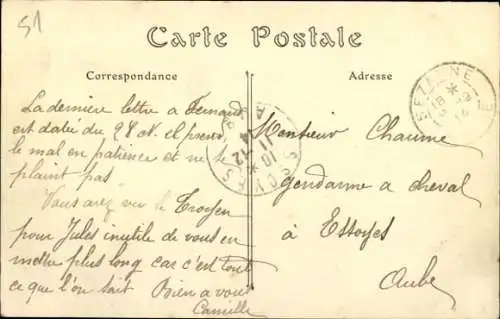 51
Carte Postale
Correspondance
Adresse
La dernière lettre a Fernand
est datée du 28 N. il prend
le mal en patience et ne se
plaint pas
Vous avez vu le Troyen
pour Jules inutile de vous en
mettre plus long car c'est tout
ce que l'on sait Bien a vous
Camille
Monsieur Chaume
Gendarme a cheval
à Essoyes
Aube
SEZANNE
ESSOYES